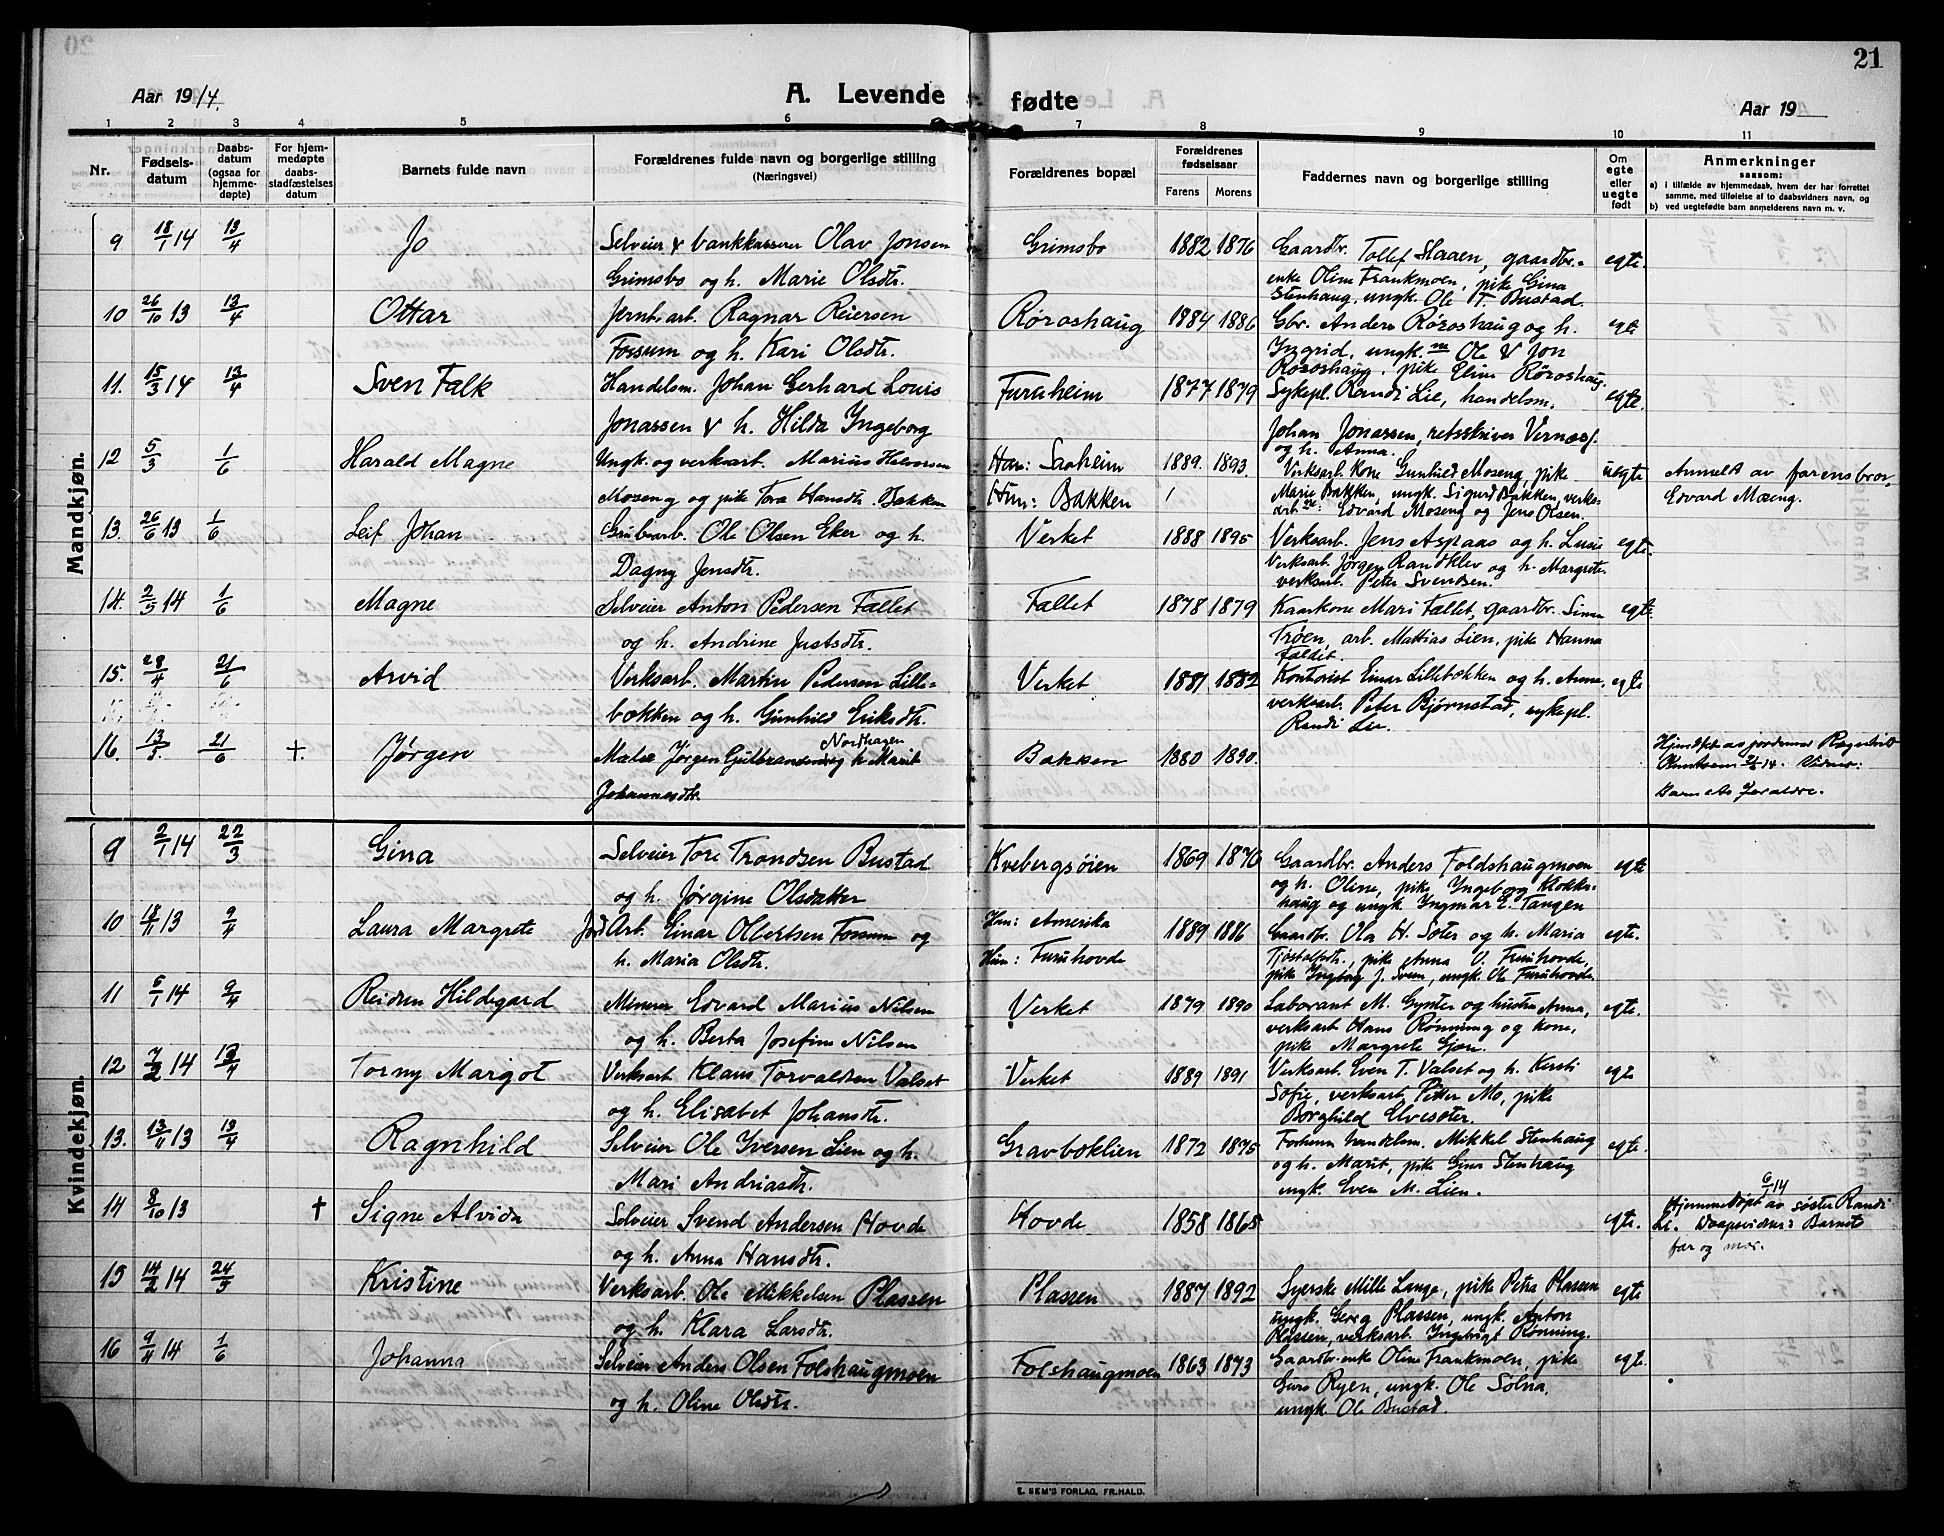 20
21
Aar 1914.
A. Levende fødte
Aar 19
1 2 3 4 5 6 7 8 9 10 11
Nr.
Fødsels-
datum
Daabs-
datum
(ogsaa for
hjemme-
døpte)
For hjem-
medøpte
daabs-
stadfæstelses
datum
Barnets fulde navn
Forældrenes fulde navn og borgerlige stilling
(Næringsvei)
Forældrenes bopæl
Forældrenes
fødselsaar
Farens Morens
Faddernes navn og borgerlige stilling
Om
egte
eller
uegte
født
Anmerkninger
saasom:
a) i tilfælde av hjemmedaab, hvem der har forrettet
samme, med tilføielse af to daabsvidners navn, og
b) ved uegtefødte barn anmelderens navn m. v.
Mandkjøn.
9 18/1 14 13/4 Jo Selveier & bankkasserer Olav Jonsen Grimsbo 1882 1876 Gaardbr. Tollef Slaaen, gaardbr.- egte.
Grimsbo og h. Marie Olsdtr. enke Oline Frankmoen, pike Gina
Stenhaug, ungk. Ole T. Bustad.
10 26/10 13 13/4 Ottar Jernb.arb. Ragnar Reiersen Røroshaug 1884 1886 Gbr. Anders Røroshaug og h. egte
Fossum og h. Kari Olsdtr. Ingrid, ungk. m Ole & Jon
Røroshaug, pike Eline Røroshaug.
11. 15/3 14 13/4 Sven Falk Handelsm. Johan Gerhard Louis Furuheim 1877 1879 Sykepl. Randi Lie, handelsm. egte.
Jonassen & h. Hilda Ingeborg Johan Jonassen, retsskriver
og h. Anna.
12 5/3 1/6 Harald Magne Ungk. og verksarb. Marius Halvorsen Han: Saaheim 1889. 1893. Verksarb. kone Gunhild Moseng, pike uegte Anmeldt av farens bror,
Moseng og pike Tora Hansdtr. Bakken Hun: Bakken Marie Bakken, ungk. Sigurd Bakken, verks- Edvard Moseng.
arb. Edvard Moseng og Jens Olsen.
13. 26/6 13 1/6 Leif Johan Grubearb. Ole Olsen Eker og h. Verket 1888 1895 Verksarb. Jens Aspaas og h. Lusie egte.
Dagny Jensdtr. Verksarb. Jørgen Randklev og h. Margrete.
verksarb. Peter Svendsen.
14. 2/5 14 1/6 Magne Selveier Anton Pedersen Fallet Fallet 1878 1879 Kaarkone Mari Fallet, gaardbr. Simen egte.
og h. Andrine Justsdtr. Trøen, arb. Mattias Lien, pike Hanna
Faldet.
15. 28/4 21/6 Arvid Verksarb. Martin Pedersen Lille- Verket 1881 1882 Kontorist Einar Lillebækken og h. Anna, egte
bækken og h. Gunhild Eriksdtr. verksarb. Peter Bjørnstad, sykepl.
Randi Lie.
16. 13/5. 21/6 †. Jørgen Maler Jørgen Gulbrandsen Nordhagen og h. Marit Bakken 1880 1890. Hjemdøpt av jordemor Ragnhild
Johannesdtr. Vidner:
Barnets foraldre.
Kvindekjøn.
9 2/1 14 22/3 Gina Selveier Tore Trondsen Bustad Kvebergsøien 1869 1870 Gaardbr. Anders Foldshaugmoen egte
og h. Jørgine Olsdatter og h. Oline, pike Ingeborg Klokke-
haug og ungk. Ingmar E. Tangen
10 18/11 13 9/4 Laura Margrete Jord Arb. Einar Olbertsen Fossum og Han: Amerika 1889 1886 Gaardbr. Ola H. Søter og h. Maria egte.
h. Maria Olsdtr. Hun: Furuhovde Tjøstolfsdtr., pike Anna O. Furuhovde,
pike Ingeborg J. Svem, ungk. Ole Furuhovde.
11 5/1 14 9/4 Reidun Hildegard Minerer Edvard Marius Nilsen Verket 1879 1890 Laborant M. Gynter og hustru Anna, egte.
og h. Berta Josefine Nilsen verksarb. Hans Rønning og kone,
pike Margrete Gjøre.
12 7/2 14 13/4 Torny Margot Verksarb. Klaus Torvaldsen Valset Verket 1889 1891 Verksarb. Even T. Valset og h. Kersti egte
og h. Elisabet Johansdtr. Sofie, verksarb. Petter Mo, pike
Borghild Elvesøter.
13. 13/11 13 13/4 Ragnhild Selveier Ole Iversen Lien og h. Gravboklien 1872 1875 Forhenv. handelsm. Mikkel Stenhaug egte.
Mari Andriasdtr. og h. Marit, pike Gina Stenhaug
ungk. Even M. Lien.
14 8/10 13 † Signe Alvida Selveier Svend Andersen Hovde Hovde 1858 1865 egte. Hjemmedøpt 6/1 14 av søster Randi
og h. Anna Hansdtr. Li. Daapsvidner: Barnets
far og mor.
15 14/2 14 24/5 Kristine Verksarb. Ole Mikkelsen Plassen Plassen 1887 1892 Syerske Mille Lange, pike Petra Plassen egte
og h. Klara Larsdtr. ungk. Georg Plassen, ungk. Anton
Plassen, verksarb. Ingebrigt Rønning.
16 9/4 14 1/6 Johanna Selveier Anders Olsen Folshaugmoen Folshaugmoen 1863 1873 Gaardbr.enke Oline Frankmoen, pike egte.
og h. Oline Olsdtr. Guro Ryen, ungk. Ole Solna,
ungk. Ole Bustad.
E. SEM'S FORLAG, FR.HALD.